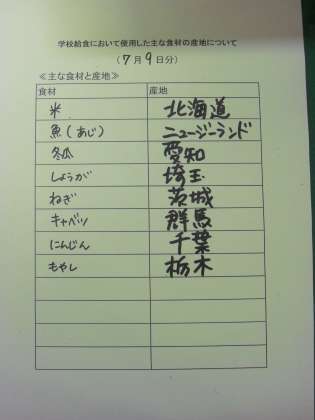 学校給食において使用した主な食材の産地について
(7月9日分)
≪主な食材と産地≫
食材 産地
米 北海道
魚(あじ) ニュージーランド
冬瓜 愛知
しょうが 埼玉
ねぎ 茨城
キャベツ 群馬
にんじん 千葉
もやし 栃木